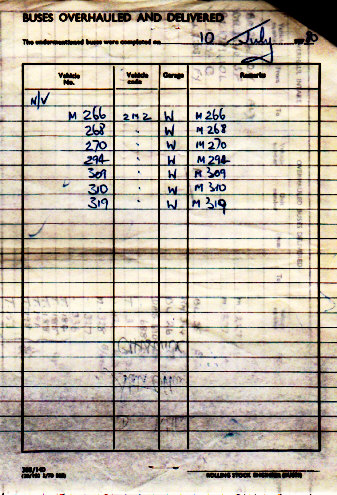 BUSES OVERHAULED AND DELIVERED
The undermentioned buses were completed on 10 July 1980
Vehicle No. Vehicle code Garage Remarks
N/V
M 266 2M2 W M 266
268 " W M 268
270 " W M 270
294 " W M 294
309 " W M 309
310 " W M 310
319 " W M 319
ROLLING STOCK ENGINEER (BUSES)